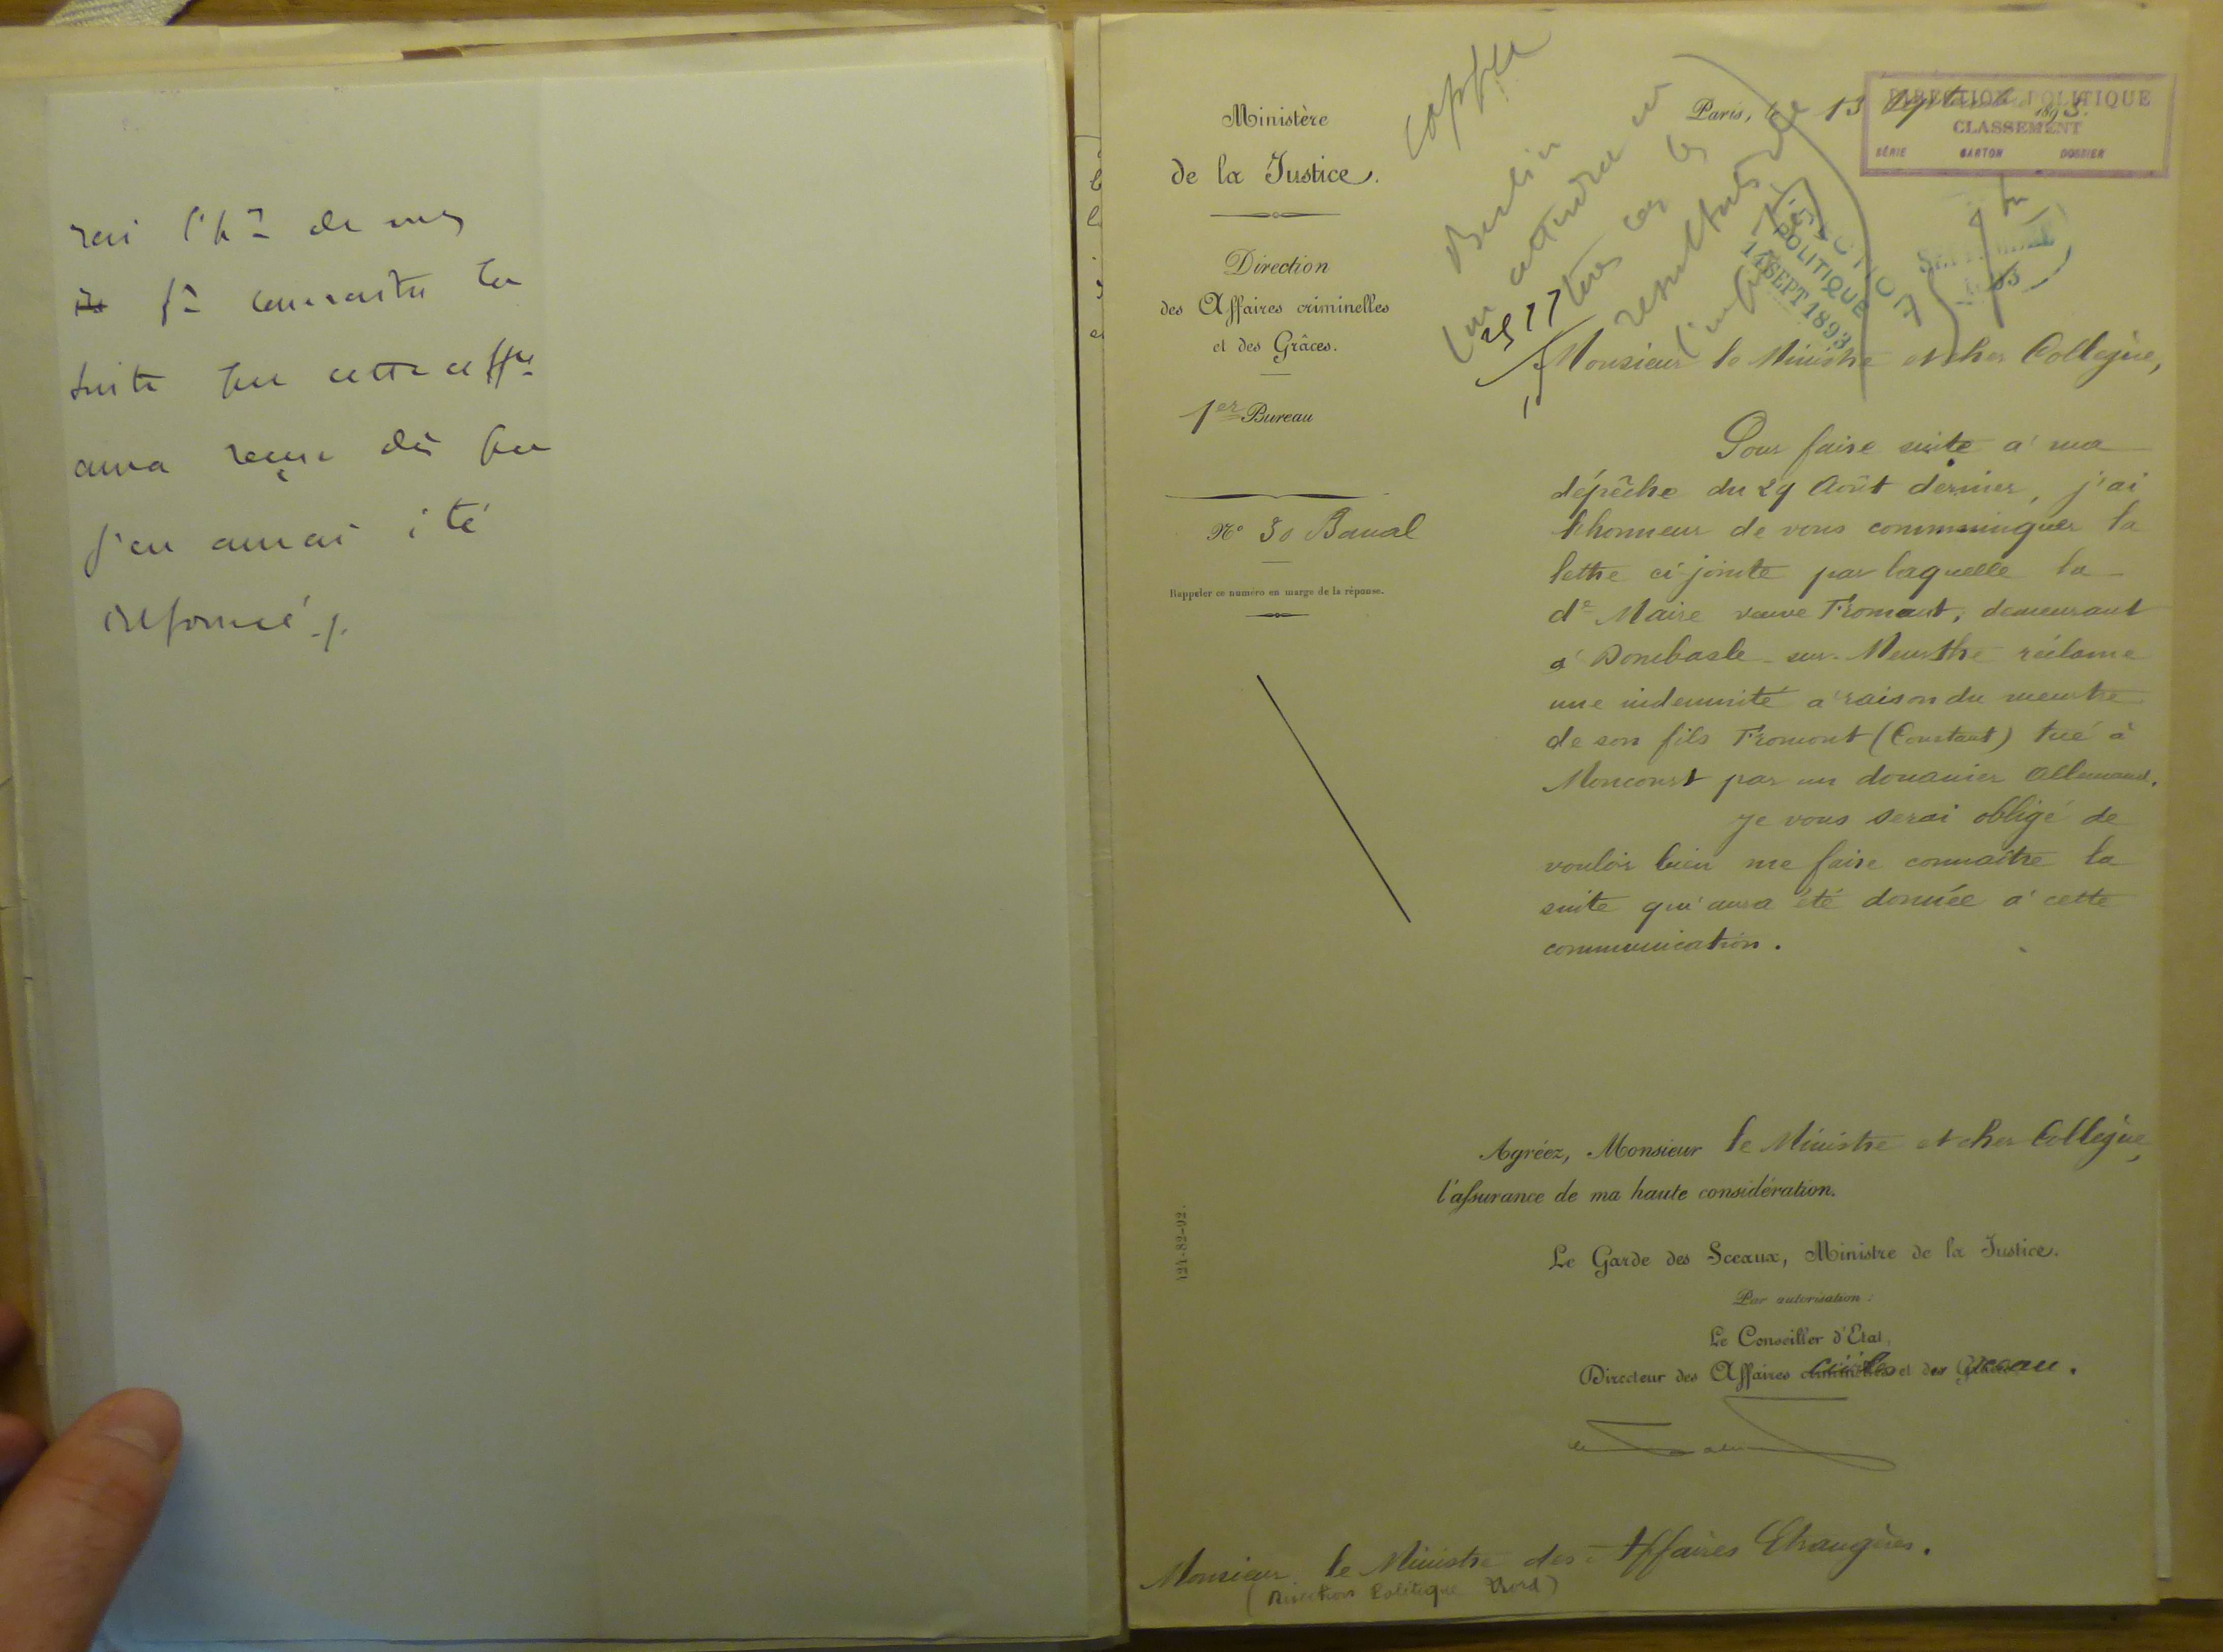 rai l'hr de vs
fe connaitre la
suite que cette affre
aura reçue dès que
j'en aurai été
informé ./.
Ministère
de la Justice.
Direction
des Affaires criminelles
et des Grâces.
1er Bureau
N° 30 Banal
Rappeler ce numéro en marge de la réponse.
121-82-92.
Berlin
attendre
les
résultats de
Paris, le 13 Septembre 1893.
DIRECTION POLITIQUE
CLASSEMENT
SÉRIE CARTON DOSSIER
DIRECTION
POLITIQUE
14 SEPT 1893
Monsieur le Ministre et cher Collègue,
Pour faire suite à ma
dépêche du 29 Août dernier, j'ai
l'honneur de vous communiquer la
lettre ci-jointe par laquelle la
de Maire veuve Fromont, demeurant
à Dombasle-sur-Meurthe réclame
une indemnité à raison du meurtre
de son fils Fromont (Constant) tué à
Moncourt par un douanier Allemand.
Je vous serai obligé de
vouloir bien me faire connaître la
suite qui aura été donnée à cette
communication.
Agréez, Monsieur le Ministre et cher Collègue,
l'assurance de ma haute considération.
Le Garde des Sceaux, Ministre de la Justice.
Par autorisation :
Le Conseiller d'Etat,
Directeur des Affaires civiles et du Sceau.
Monsieur le Ministre des Affaires Etrangères.
(Direction Politique Nord)